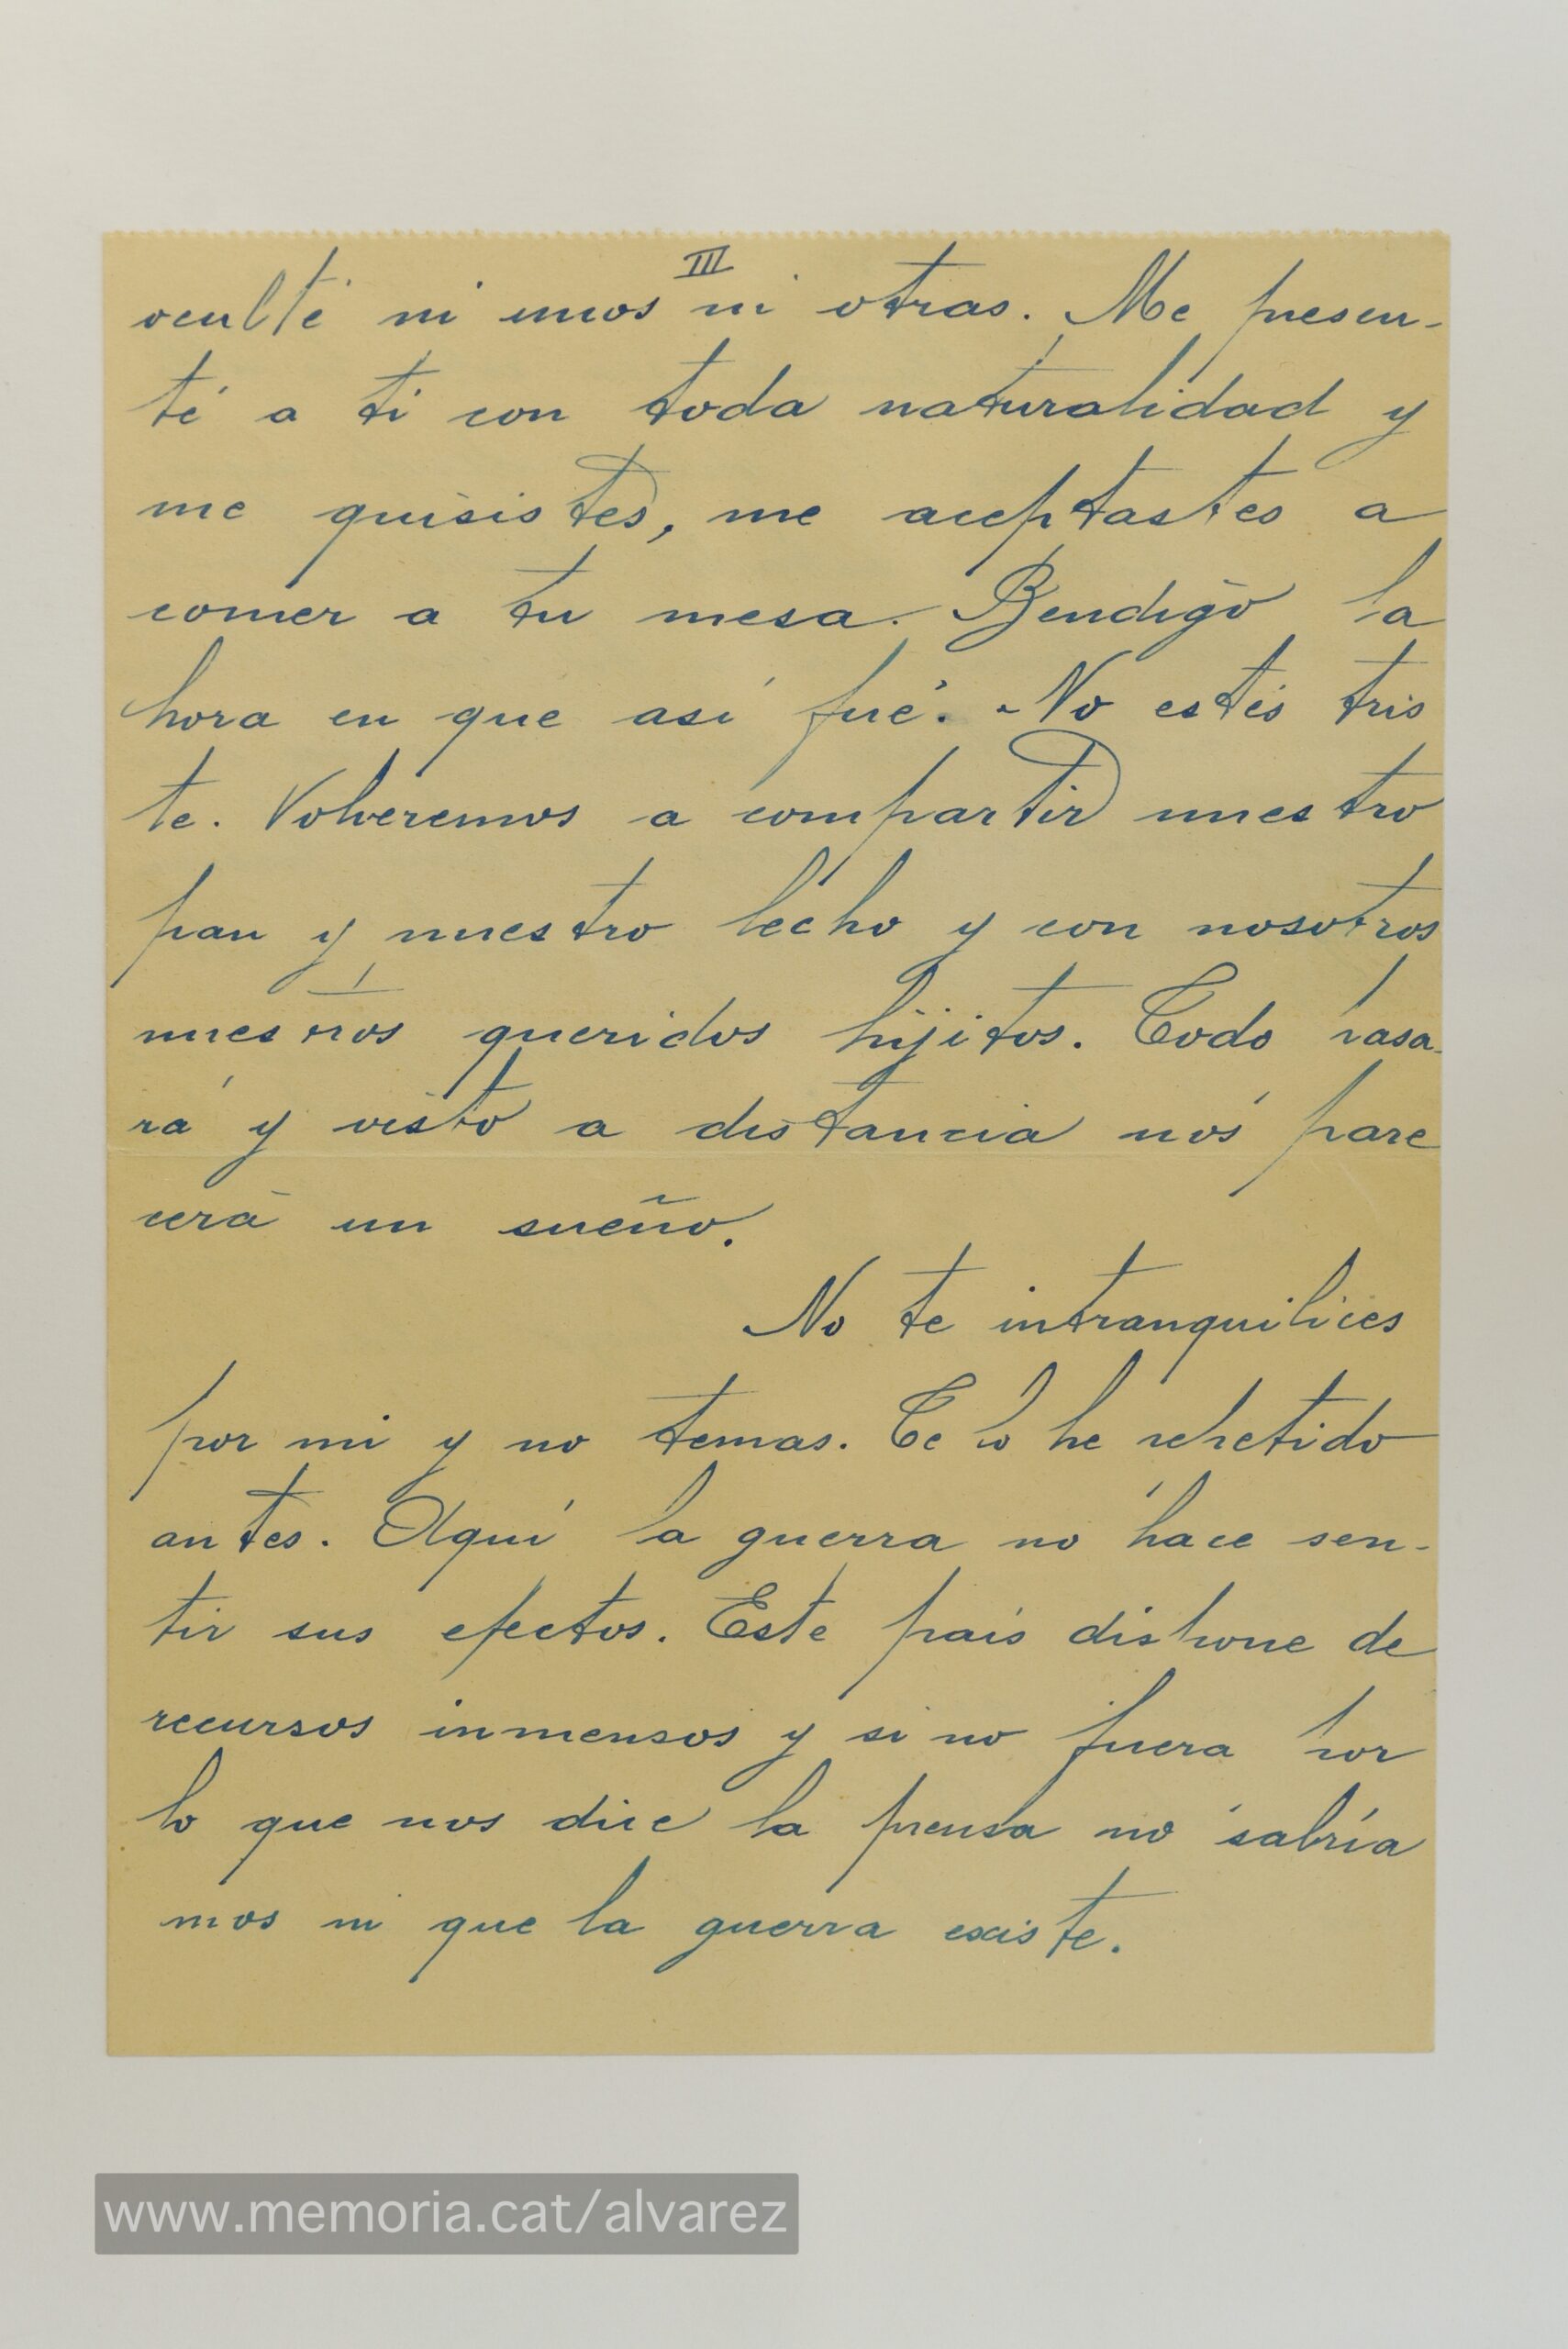 III
oculté ni unos ni otras. Me presen-
té a ti con toda naturalidad y
me quisistes, me aceptastes a
comer a tu mesa. Bendigo la
hora en que así fué. No estés tris
te. Volveremos a compartir nuestro
pan y nuestro lecho y con nosotros
nuestros queridos hijitos. Todo pasa-
rá y visto a distancia nos pare
cerá un sueño.
No te intranquilices
por mi y no temas. Te lo he repetido
antes. Aquí la guerra no hace sen-
tir sus efectos. Este país dispone de
recursos inmensos y si no fuera por
lo que nos dice la prensa no sabría
mos ni que la guerra existe.
www.memoria.cat/alvarez